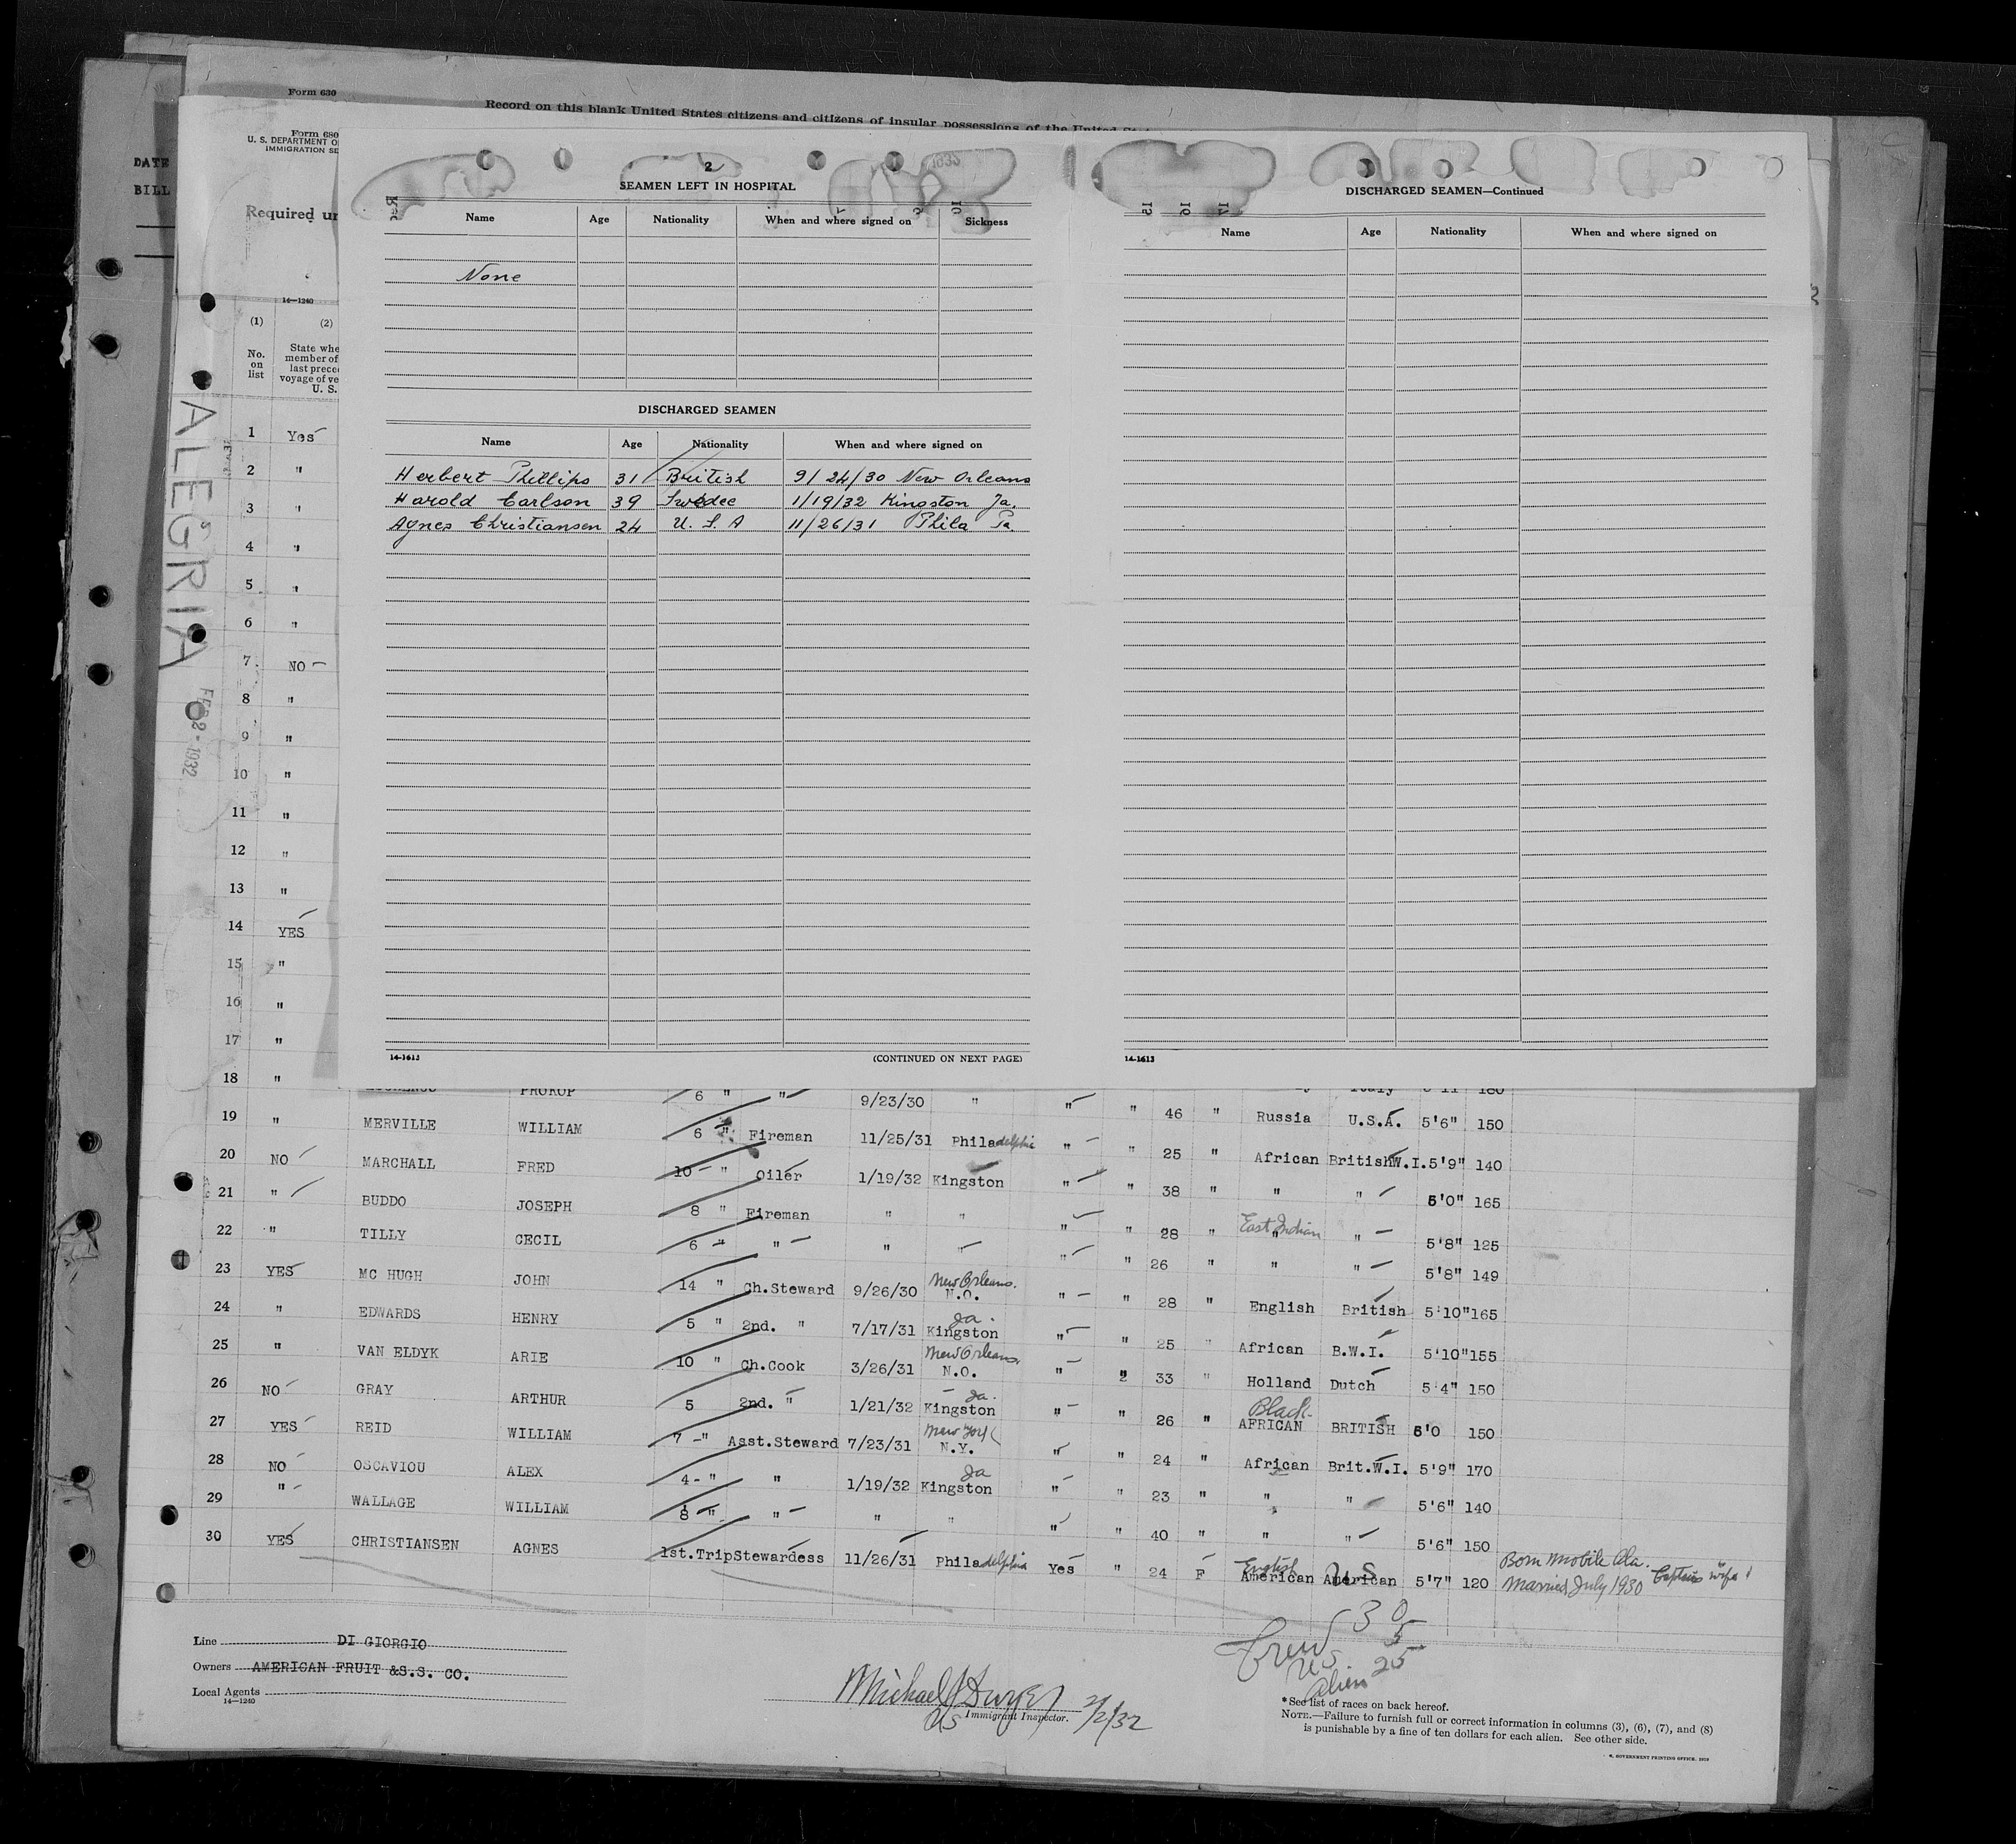 Form 630
Record on this blank United States citizens and citizens of insular possessions of the United
DATE
BILL
Form 680
U. S. DEPARTMENT O
IMMIGRATION SE
Required un
14—1240
(1) (2)
No. on list
State whe
member of
last prece
voyage of ve
U. S.
ALEGRIA
FEB 2 - 1932
2
SEAMEN LEFT IN HOSPITAL
Name Age Nationality When and where signed on Sickness
None
DISCHARGED SEAMEN
Name Age Nationality When and where signed on
Herbert Phillips 31 British 9/24/30 New Orleans
Harold Carlson 39 Swedee 1/19/32 Kingston Ja.
Agnes Christiansen 24 U. S. A 11/26/31 Phila Pa.
14-1613 (CONTINUED ON NEXT PAGE)
DISCHARGED SEAMEN—Continued
Name Age Nationality When and where signed on
14-1613
1 Yes
2 "
3 "
4 "
5 "
6 "
7 NO
8 "
9 "
10 "
11 "
12 "
13 "
14 YES
15 "
16 "
17 "
18 " PROKOP 6 " " 9/23/30 " " " 46 " Russia U.S.A. 5'6" 150
19 " MERVILLE WILLIAM 6 " Fireman 11/25/31 Philadelphia " " 25 " African British W.I. 5'9" 140
20 NO MARCHALL FRED 10 " Oiler 1/19/32 Kingston " " 38 " " " 5'0" 165
21 " BUDDO JOSEPH 8 " Fireman " " " " 28 " East Indian " 5'8" 125
22 " TILLY CECIL 6 " " " " " " 26 " " " 5'8" 149
23 YES MC HUGH JOHN 14 " Ch.Steward 9/26/30 New Orleans. N.O. " " 28 " English British 5'10" 165
24 " EDWARDS HENRY 5 " 2nd. " 7/17/31 Ja. Kingston " " 25 " African B.W.I. 5'10" 155
25 " VAN ELDYK ARIE 10 " Ch.Cook 3/26/31 New Orleans N.O. " " 33 " Holland Dutch 5'4" 150
26 NO GRAY ARTHUR 5 2nd. " 1/21/32 Ja. Kingston " " 26 " Black AFRICAN BRITISH 6'0 150
27 YES REID WILLIAM 7 " Asst.Steward 7/23/31 New York N.Y. " " 24 " African Brit.W.I. 5'9" 170
28 NO OSCAVIOU ALEX 4 " " 1/19/32 Ja Kingston " " 23 " " " 5'6" 140
29 " WALLAGE WILLIAM 8 " " " " " " 40 " " " 5'6" 150
30 YES CHRISTIANSEN AGNES 1st.Trip Stewardess 11/26/31 Philadelphia Yes " 24 F English American U S American 5'7" 120 Born Mobile Ala. Married July 1930 Captains wife
Crew 30
U.S. 5
Alien 25
Line DI GIORGIO
Owners AMERICAN FRUIT &S.S. CO.
Local Agents
14—1240
Michael J Dwyer 2/2/32
US Immigrant Inspector.
* See list of races on back hereof.
NOTE.—Failure to furnish full or correct information in columns (3), (6), (7), and (8)
is punishable by a fine of ten dollars for each alien. See other side.
GOVERNMENT PRINTING OFFICE: 1929